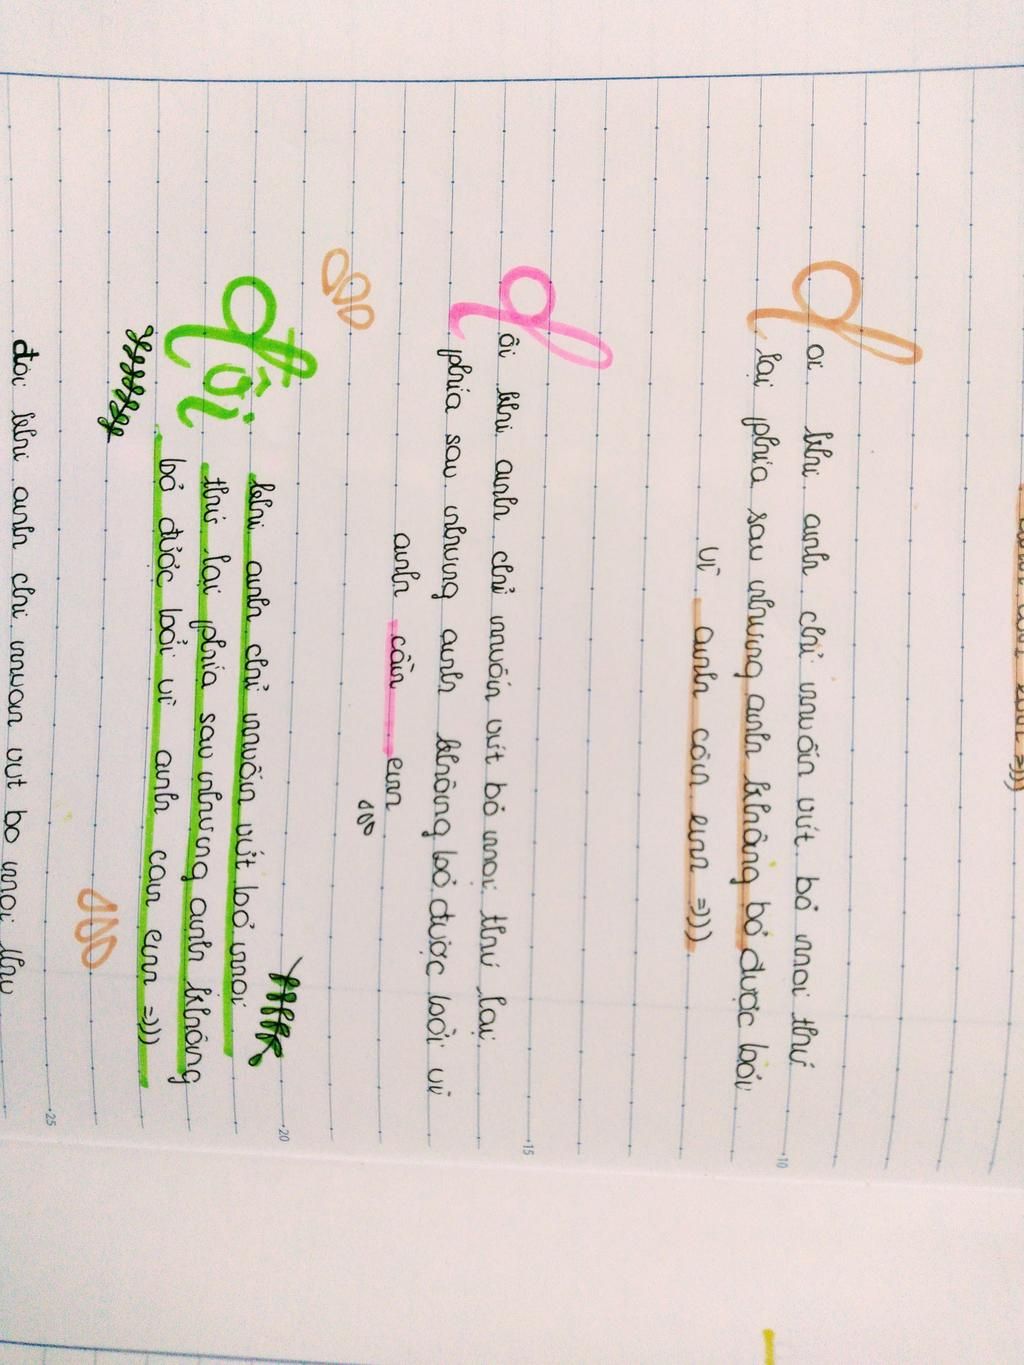 đ oi khi anh chỉ muốn vứt bỏ mọi thứ
lại phía sau nhưng anh không bỏ được bởi
vì anh cần em =)))
10
đ ôi khi anh chỉ muốn vứt bỏ mọi thứ lại
phía sau nhưng anh không bỏ được bởi vì
anh cần em
15
Đôi khi anh chỉ muốn vứt bỏ mọi
thứ lại phía sau nhưng anh không
bỏ được bởi vì anh can em =)))
20
đôi khi anh chi muon vut bo moi thu
25